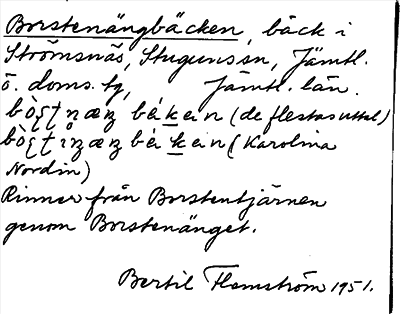 Borstenängbäcken, bäck i
Strömsnäs, Stuguns sn, Jämtl.
ö. doms. tg, Jämtl. län.
(de flestas uttal)
(Karolina
Nordin)
Rinner från Borstentjärnen
genom Borstenänget.
Bertil Flemström 1951.